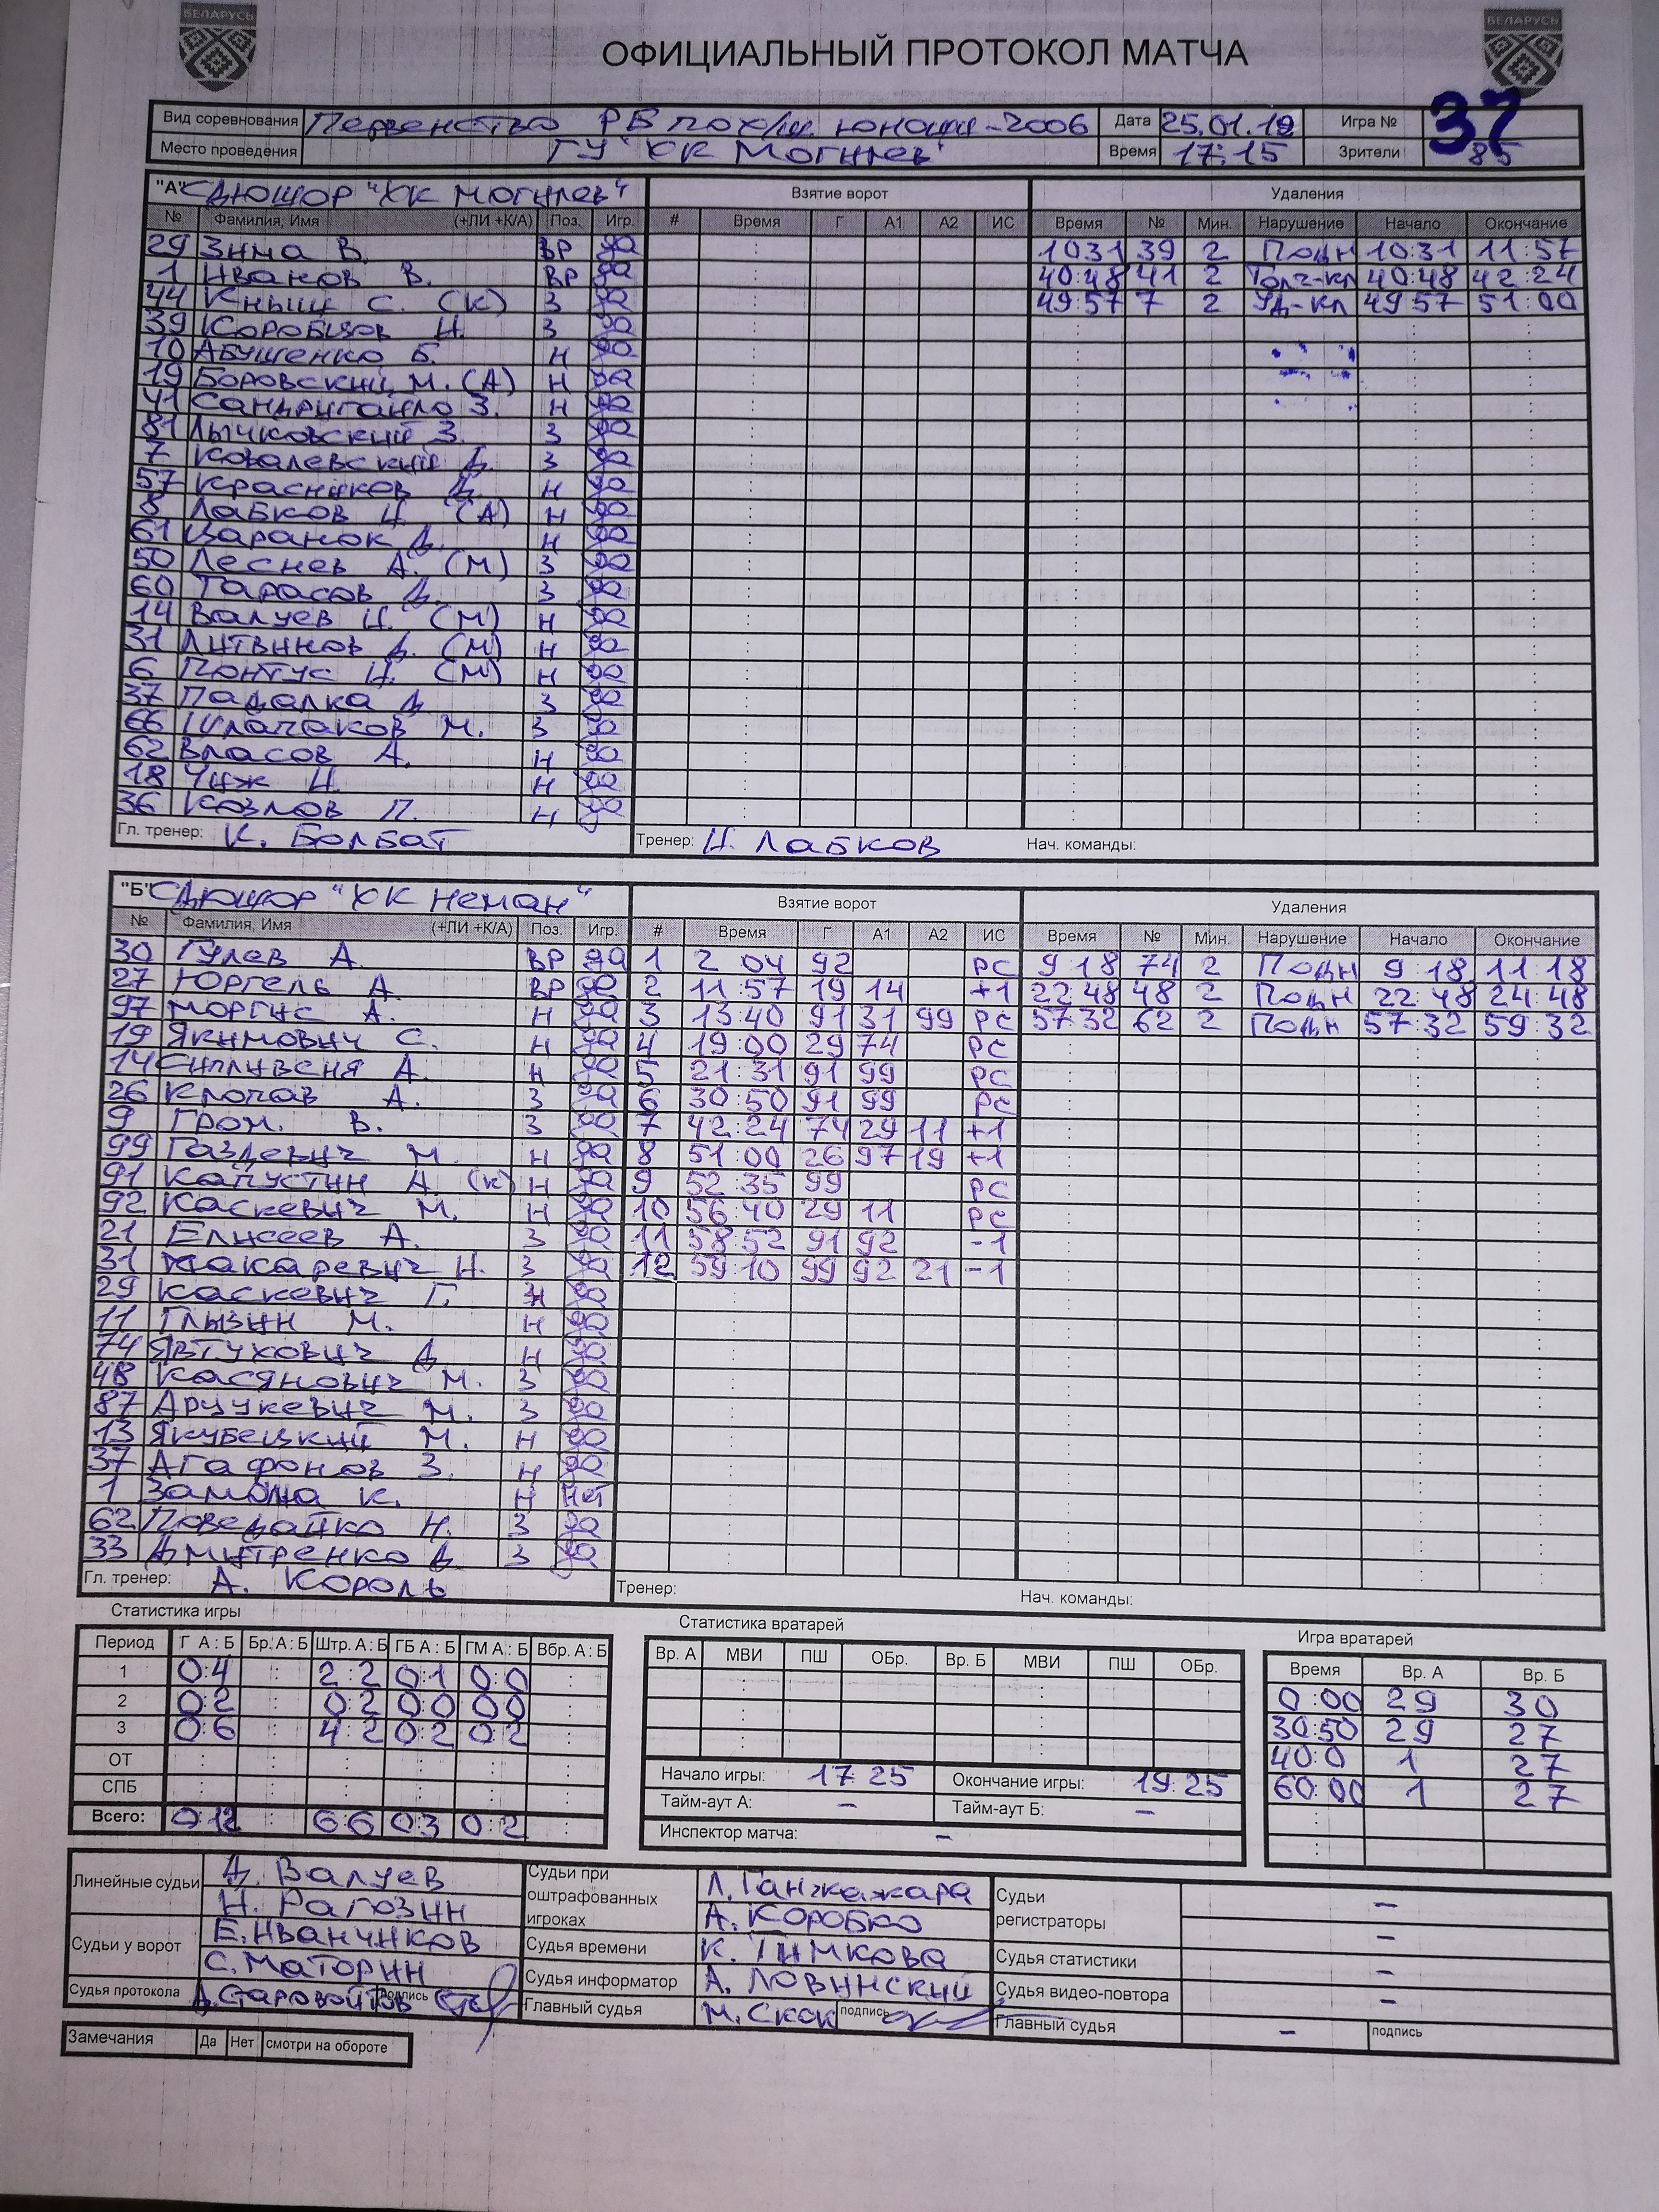 БЕЛАРУСЬ БЕЛАРУСЬ
ОФИЦИАЛЬНЫЙ ПРОТОКОЛ МАТЧА
Вид соревнования Первенство РБ по юноши-2006 Дата 25.01.19 Игра № 37
Место проведения ГУ "ХК Могилев" Время 17:15 Зрители 85
"А" СДЮШОР "ХК Могилев" Взятие ворот Удаления
№ Фамилия, Имя (+ЛИ +К/А) Поз. Игр. # Время Г А1 А2 ИС Время № Мин. Нарушение Начало Окончание
29 Зима В. ВР да 10 31 39 2 Подн 10:31 11:57
1 Иванов В. ВР да 40:48 41 2 Толч-кл 40:48 42:24
44 Кныш С. (К) З да 49:57 7 2 Уд-кл 49 57 51:00
39 Коробцов И. З да
10 Абушенко Б. Н да
19 Боровский М. (А) Н да
41 Сандригайло З. Н да
81 Лычковский З. З да
7 Ковалевский Д. З да
57 Красников Д. Н да
8 Лабков И. (А) Н да
61 Царанок Д. Н да
50 Леснев А. (М) З да
60 Тарасов Д. З да
14 Валуев И. (М) Н да
31 Литвинов Д. (М) Н да
6 Понтус И. (М) Н да
37 Падалка Д З да
66 Шлапаков М. З да
62 Власов А. Н да
18 Чиж И. Н да
36 Козлов П. Н да
Гл. тренер: К. Болбат Тренер: И. Лабков Нач. команды:
"Б" СДЮШОР "ХК Неман" Взятие ворот Удаления
№ Фамилия, Имя (+ЛИ +К/А) Поз. Игр. # Время Г А1 А2 ИС Время № Мин. Нарушение Начало Окончание
30 Гулев А. ВР да 1 2 04 92 РС 9 18 74 2 Подн 9:18 11:18
27 Юргель А. ВР да 2 11:57 19 14 +1 22:48 48 2 Подн 22:48 24:48
97 Моргис А. Н да 3 13:40 91 31 99 РС 57:32 62 2 Подн 57:32 59:32
19 Якимович С. Н да 4 19:00 29 74 РС
14 Силивеня А. Н да 5 21:31 91 99 РС
26 Клопов А. З да 6 30:50 91 99 РС
9 Гром. В. З да 7 42:24 74 29 11 +1
99 Газдевич М. Н да 8 51:00 26 97 19 +1
91 Капустин А. (К) Н да 9 52:35 99 РС
92 Каскевич М. Н да 10 56:40 29 11 РС
21 Елисеев А. З да 11 58:52 91 92 -1
31 Макаревич Н. З да 12 59 10 99 92 21 -1
29 Каскевич Г. Н да
11 Глызин М. Н да
74 Явтухович Д Н да
48 Касянович М. З да
87 Арцукевич М. З да
13 Якубецкий М. Н да
37 Агафонов З. Н да
1 К. Н Нет
62 Поведайко Н. З да
33 Дмитренко Д З да
Гл. тренер: А. Король Тренер: Нач. команды:
Статистика игры Статистика вратарей Игра вратарей
Период Г А : Б Бр. А : Б Штр. А : Б ГБ А : Б ГМ А : Б Вбр. А : Б Вр. А МВИ ПШ ОБр. Вр. Б МВИ ПШ ОБр. Время Вр. А Вр. Б
1 0:4 2:2 0:1 0:0 0:00 29 30
2 0:2 0:2 0:0 0:0 30:50 29 27
3 0:6 4:2 0:2 0:2 40:0 1 27
ОТ Начало игры: 17 25 Окончание игры: 19:25 60:00 1 27
СПБ Тайм-аут А: – Тайм-аут Б: –
Всего: 0:12 6:6 0:3 0:2 Инспектор матча: –
Линейные судьи Д. Валуев Судьи при оштрафованных игроках Л. Ганжажара Судьи регистраторы –
Н. Рагозин А. Коробко –
Судьи у ворот Е. Иванчиков Судья времени К. Тимкова Судья статистики –
С. Маторин Судья информатор А. Ловинский Судья видео-повтора –
Судья протокола Д. Старовойтов подпись Главный судья М. Скок подпись Главный судья – подпись
Замечания Да Нет смотри на обороте